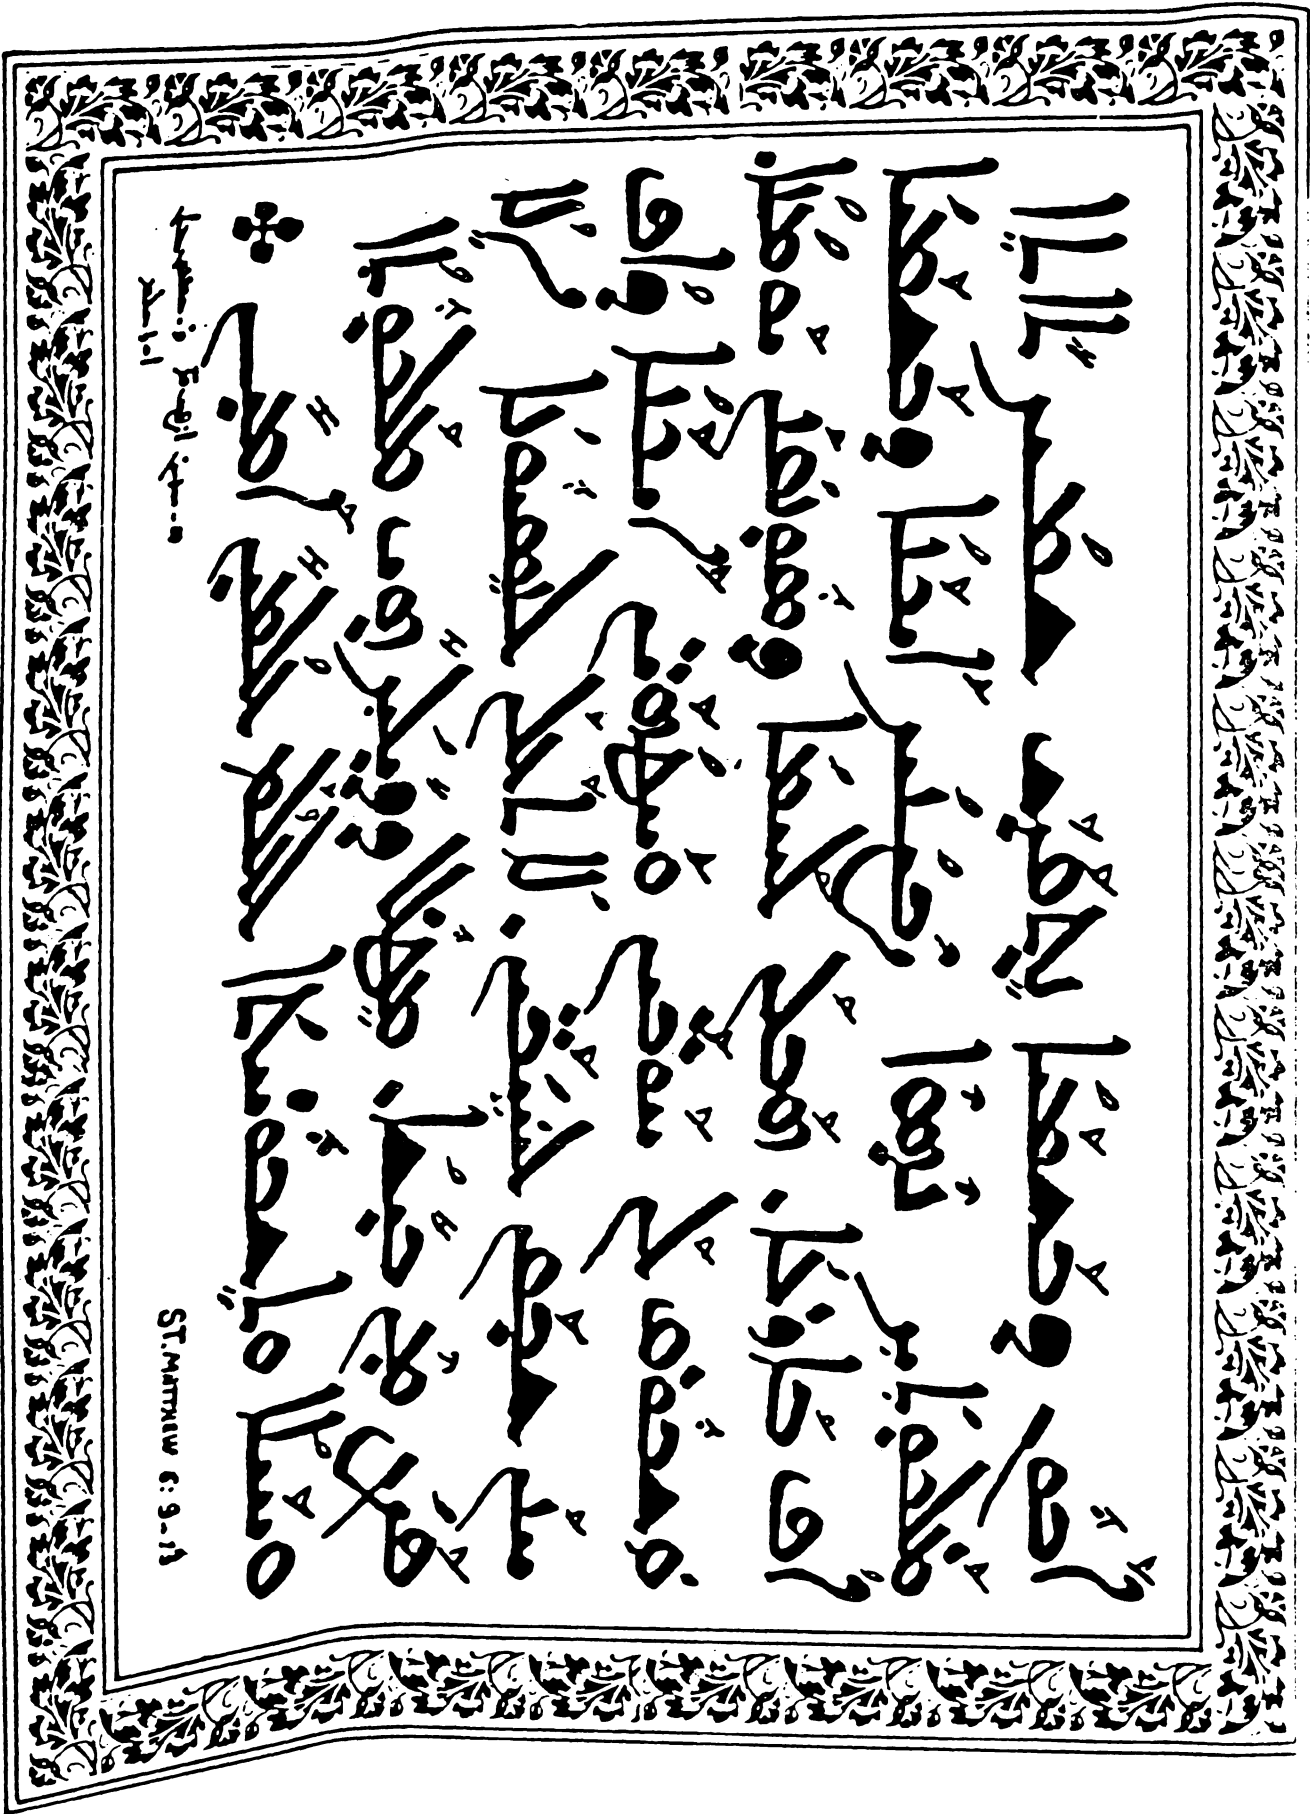 ܐܒܘܢ ܕܒܫܡܝܐ ܢܬܩܕܫ ܫܡܟ ܬܐܬܐ
ܡܠܟܘܬܟ ܢܗܘܐ ܨܒܝܢܟ ܐܝܟܢܐ ܕܒܫܡܝܐ
ܐܦ ܒܐܪܥܐ ܗܒ ܠܢ ܠܚܡܐ ܕܣܘܢܩܢܢ ܝܘܡܢܐ
ܘܫܒܘܩ ܠܢ ܚܘܒܝܢ ܘܚܛܗܝܢ ܐܝܟܢܐ ܕܐܦ
ܚܢܢ ܫܒܩܢ ܠܚܝܒܝܢ ܠܐ ܬܥܠܢ ܠܢܣܝܘܢܐ ܐܠܐ
ܦܨܢ ܡܢ ܒܝܫܐ ܡܛܠ ܕܕܝܠܟ ܗܝ ܡܠܟܘܬܐ
ܘܚܝܠܐ ܘܬܫܒܘܚܬܐ ܠܥܠܡ ܥܠܡܝܢ ܐܡܝܢ
ST. MATTHEW 6: 9-13